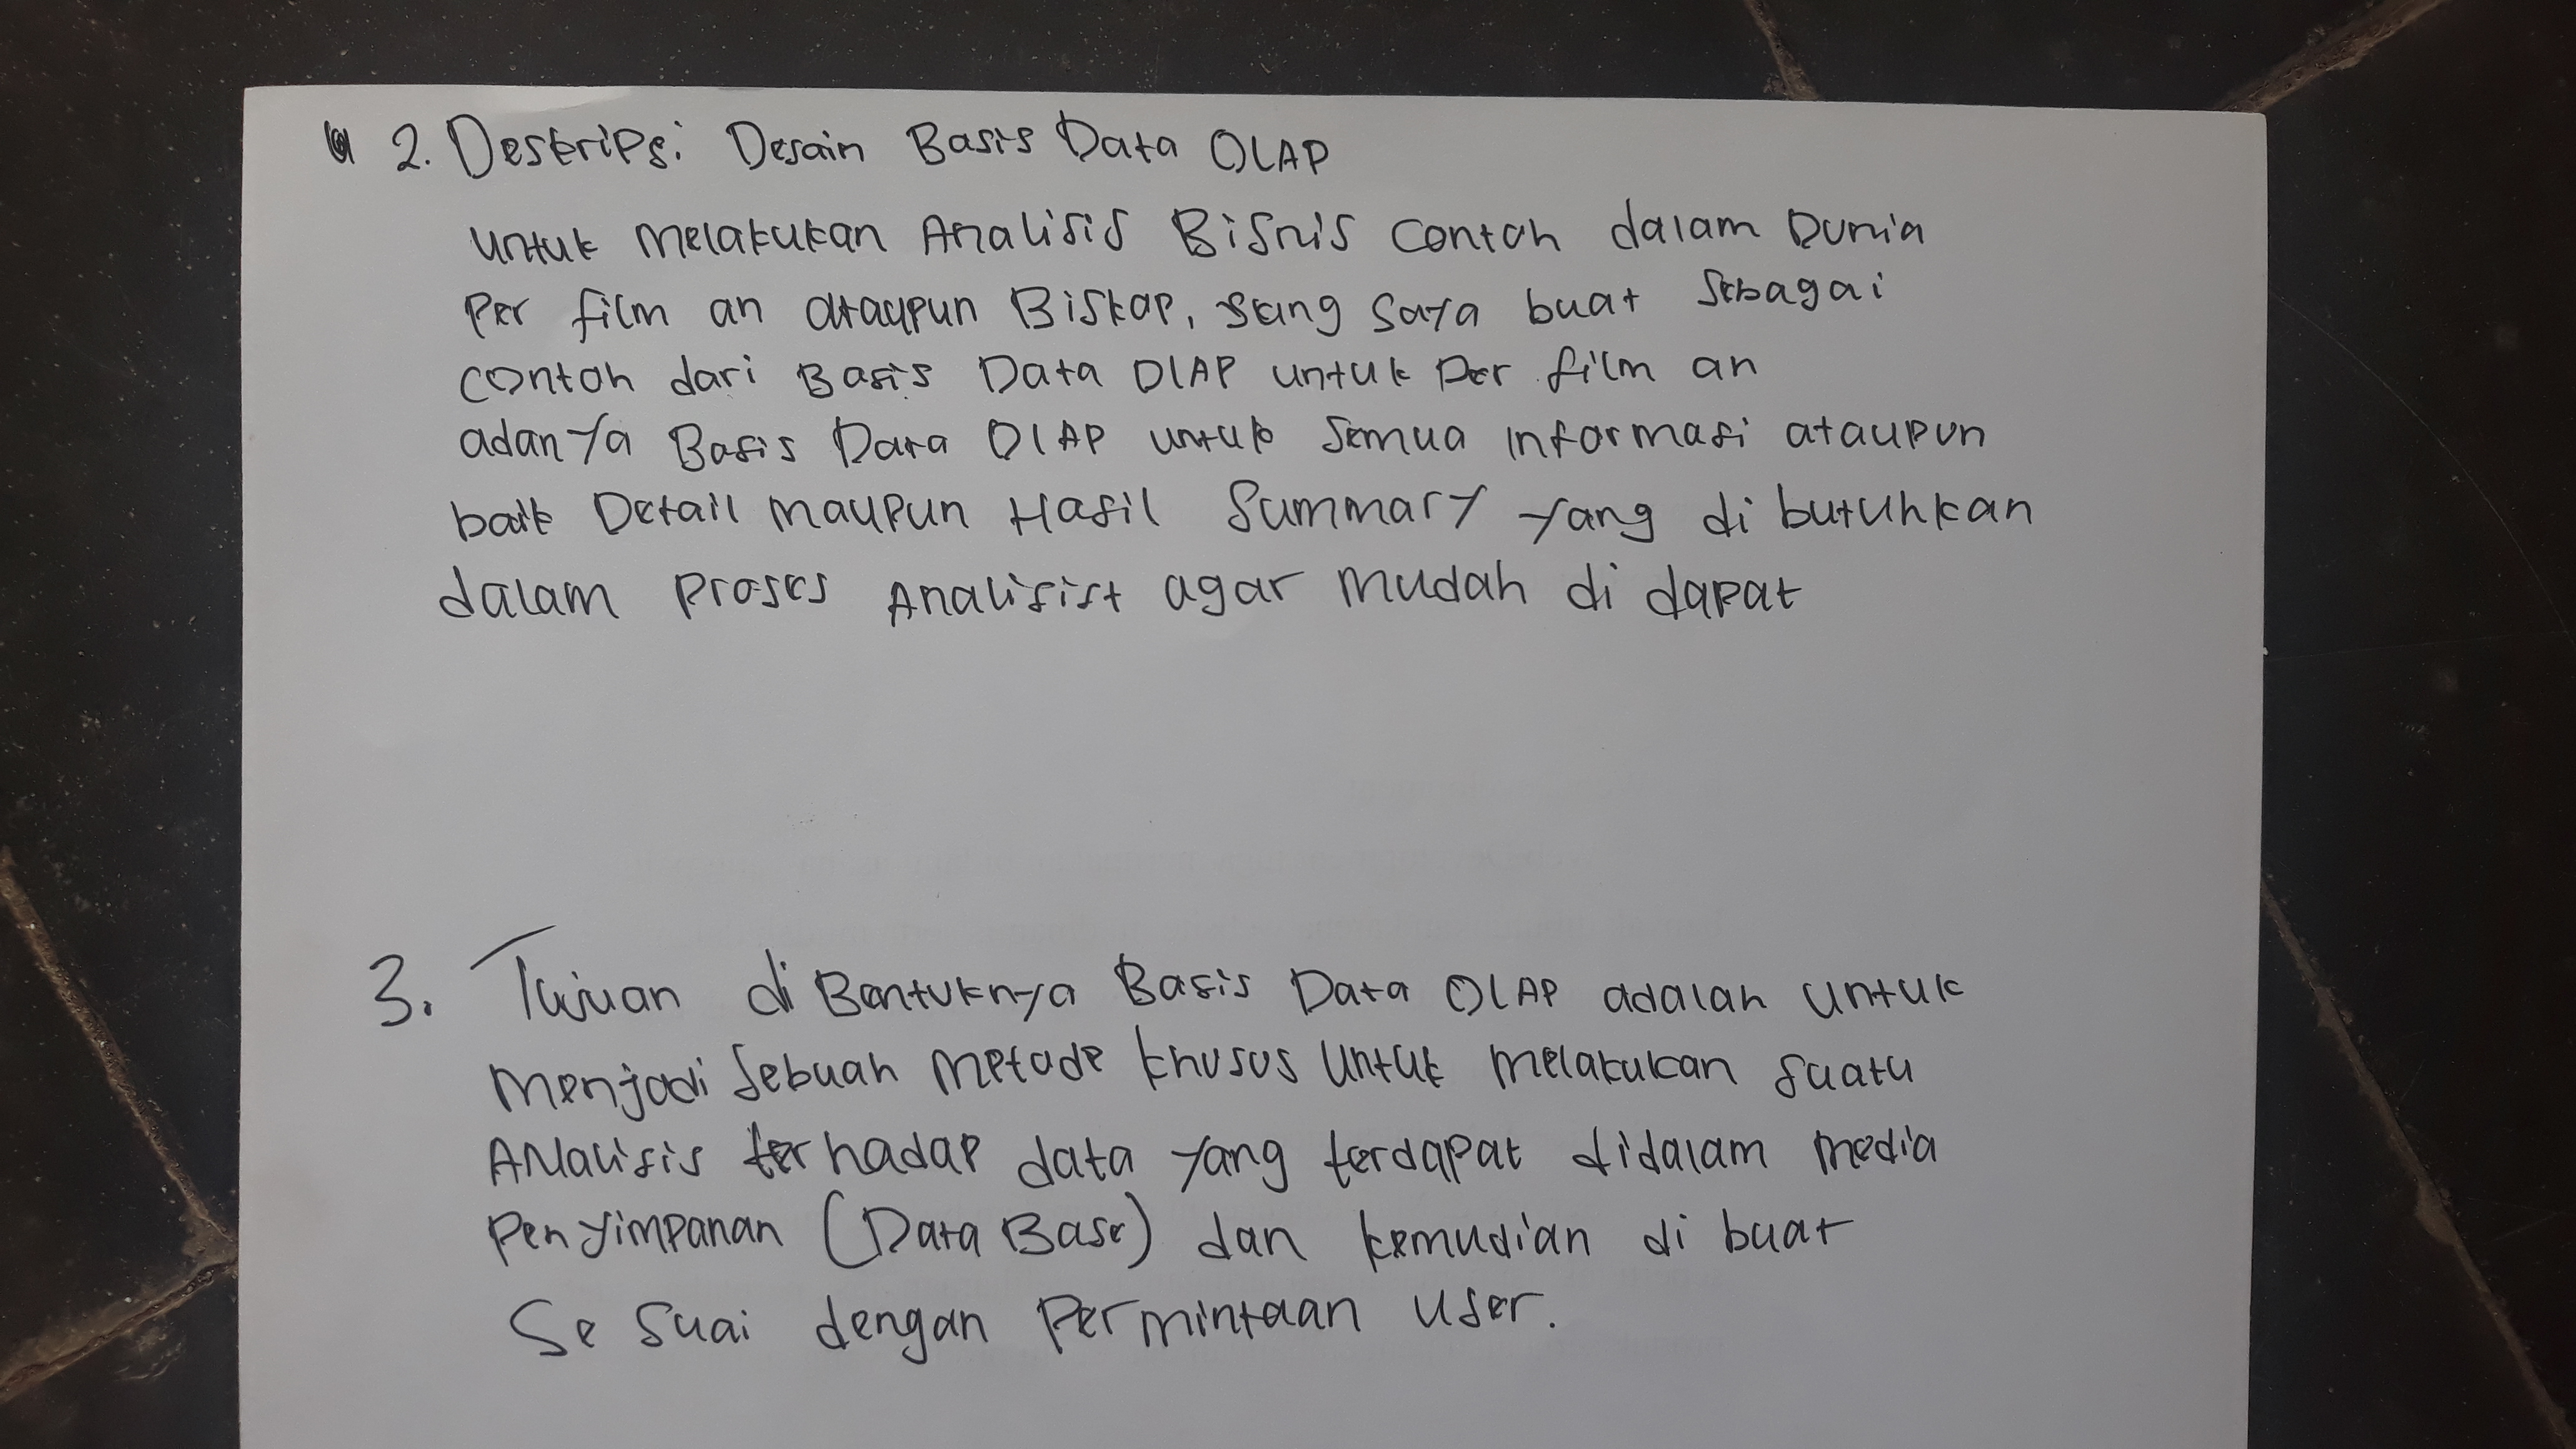 2. Deskripsi Desain Basis Data OLAP
untuk melakukan Analisis Bisnis Contoh dalam Dunia
Per film an ataupun Biskop, yang saya buat sebagai
contoh dari Basis Data OLAP untuk Per film an
adanya Basis Data OLAP untuk semua informasi ataupun
baik Detail maupun Hasil Summary yang di butuhkan
dalam proses Analisist agar mudah di dapat
3. Tujuan di Bentuknya Basis Data OLAP adalah untuk
menjadi sebuah metode khusus untuk melakukan suatu
Analisis terhadap data yang terdapat didalam media
Penyimpanan (Data Base) dan kemudian di buat
Se suai dengan Permintaan user.